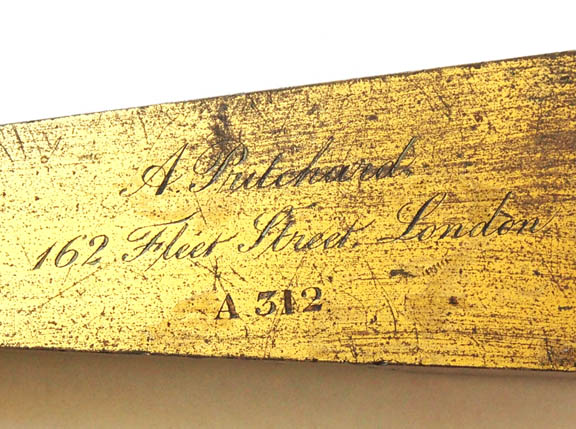 A. Pritchard,
162 Fleet Street, London
A 312